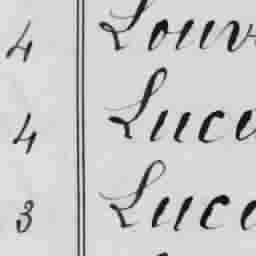 4 Louv
4 Luce
3 Luce